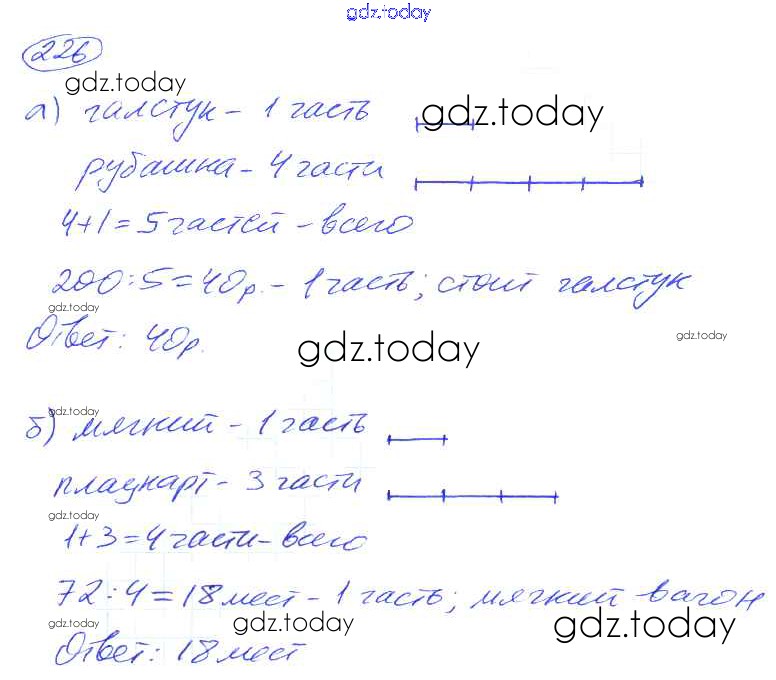 gdz.today
226
gdz.today
а) галстук - 1 часть
gdz.today
рубашка - 4 части
4+1=5 частей - всего
200:5=40р. - 1 часть; стоит галстук
gdz.today
Ответ: 40р.
gdz.today
gdz.today
gdz.today
б) мягкий - 1 часть
плацкарт - 3 части
gdz.today
1+3=4 части - всего
72:4=18 мест - 1 часть; мягкий вагон
gdz.today
gdz.today
gdz.today
Ответ: 18 мест